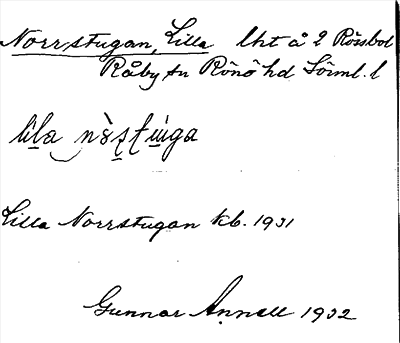 Norrstugan, Lilla lht å 2 Rössbol
Råby sn Rönö hd Sörml. l
Lilla Norrstugan Kb. 1931
Gunnar Annell 1932